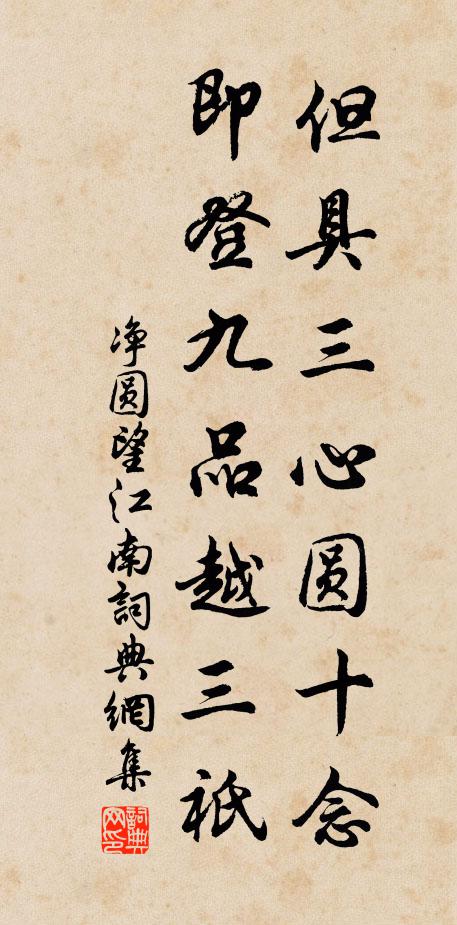 但具三心圆十念
即登九品越三祇
净圆望江南詞典網集
詞典網印